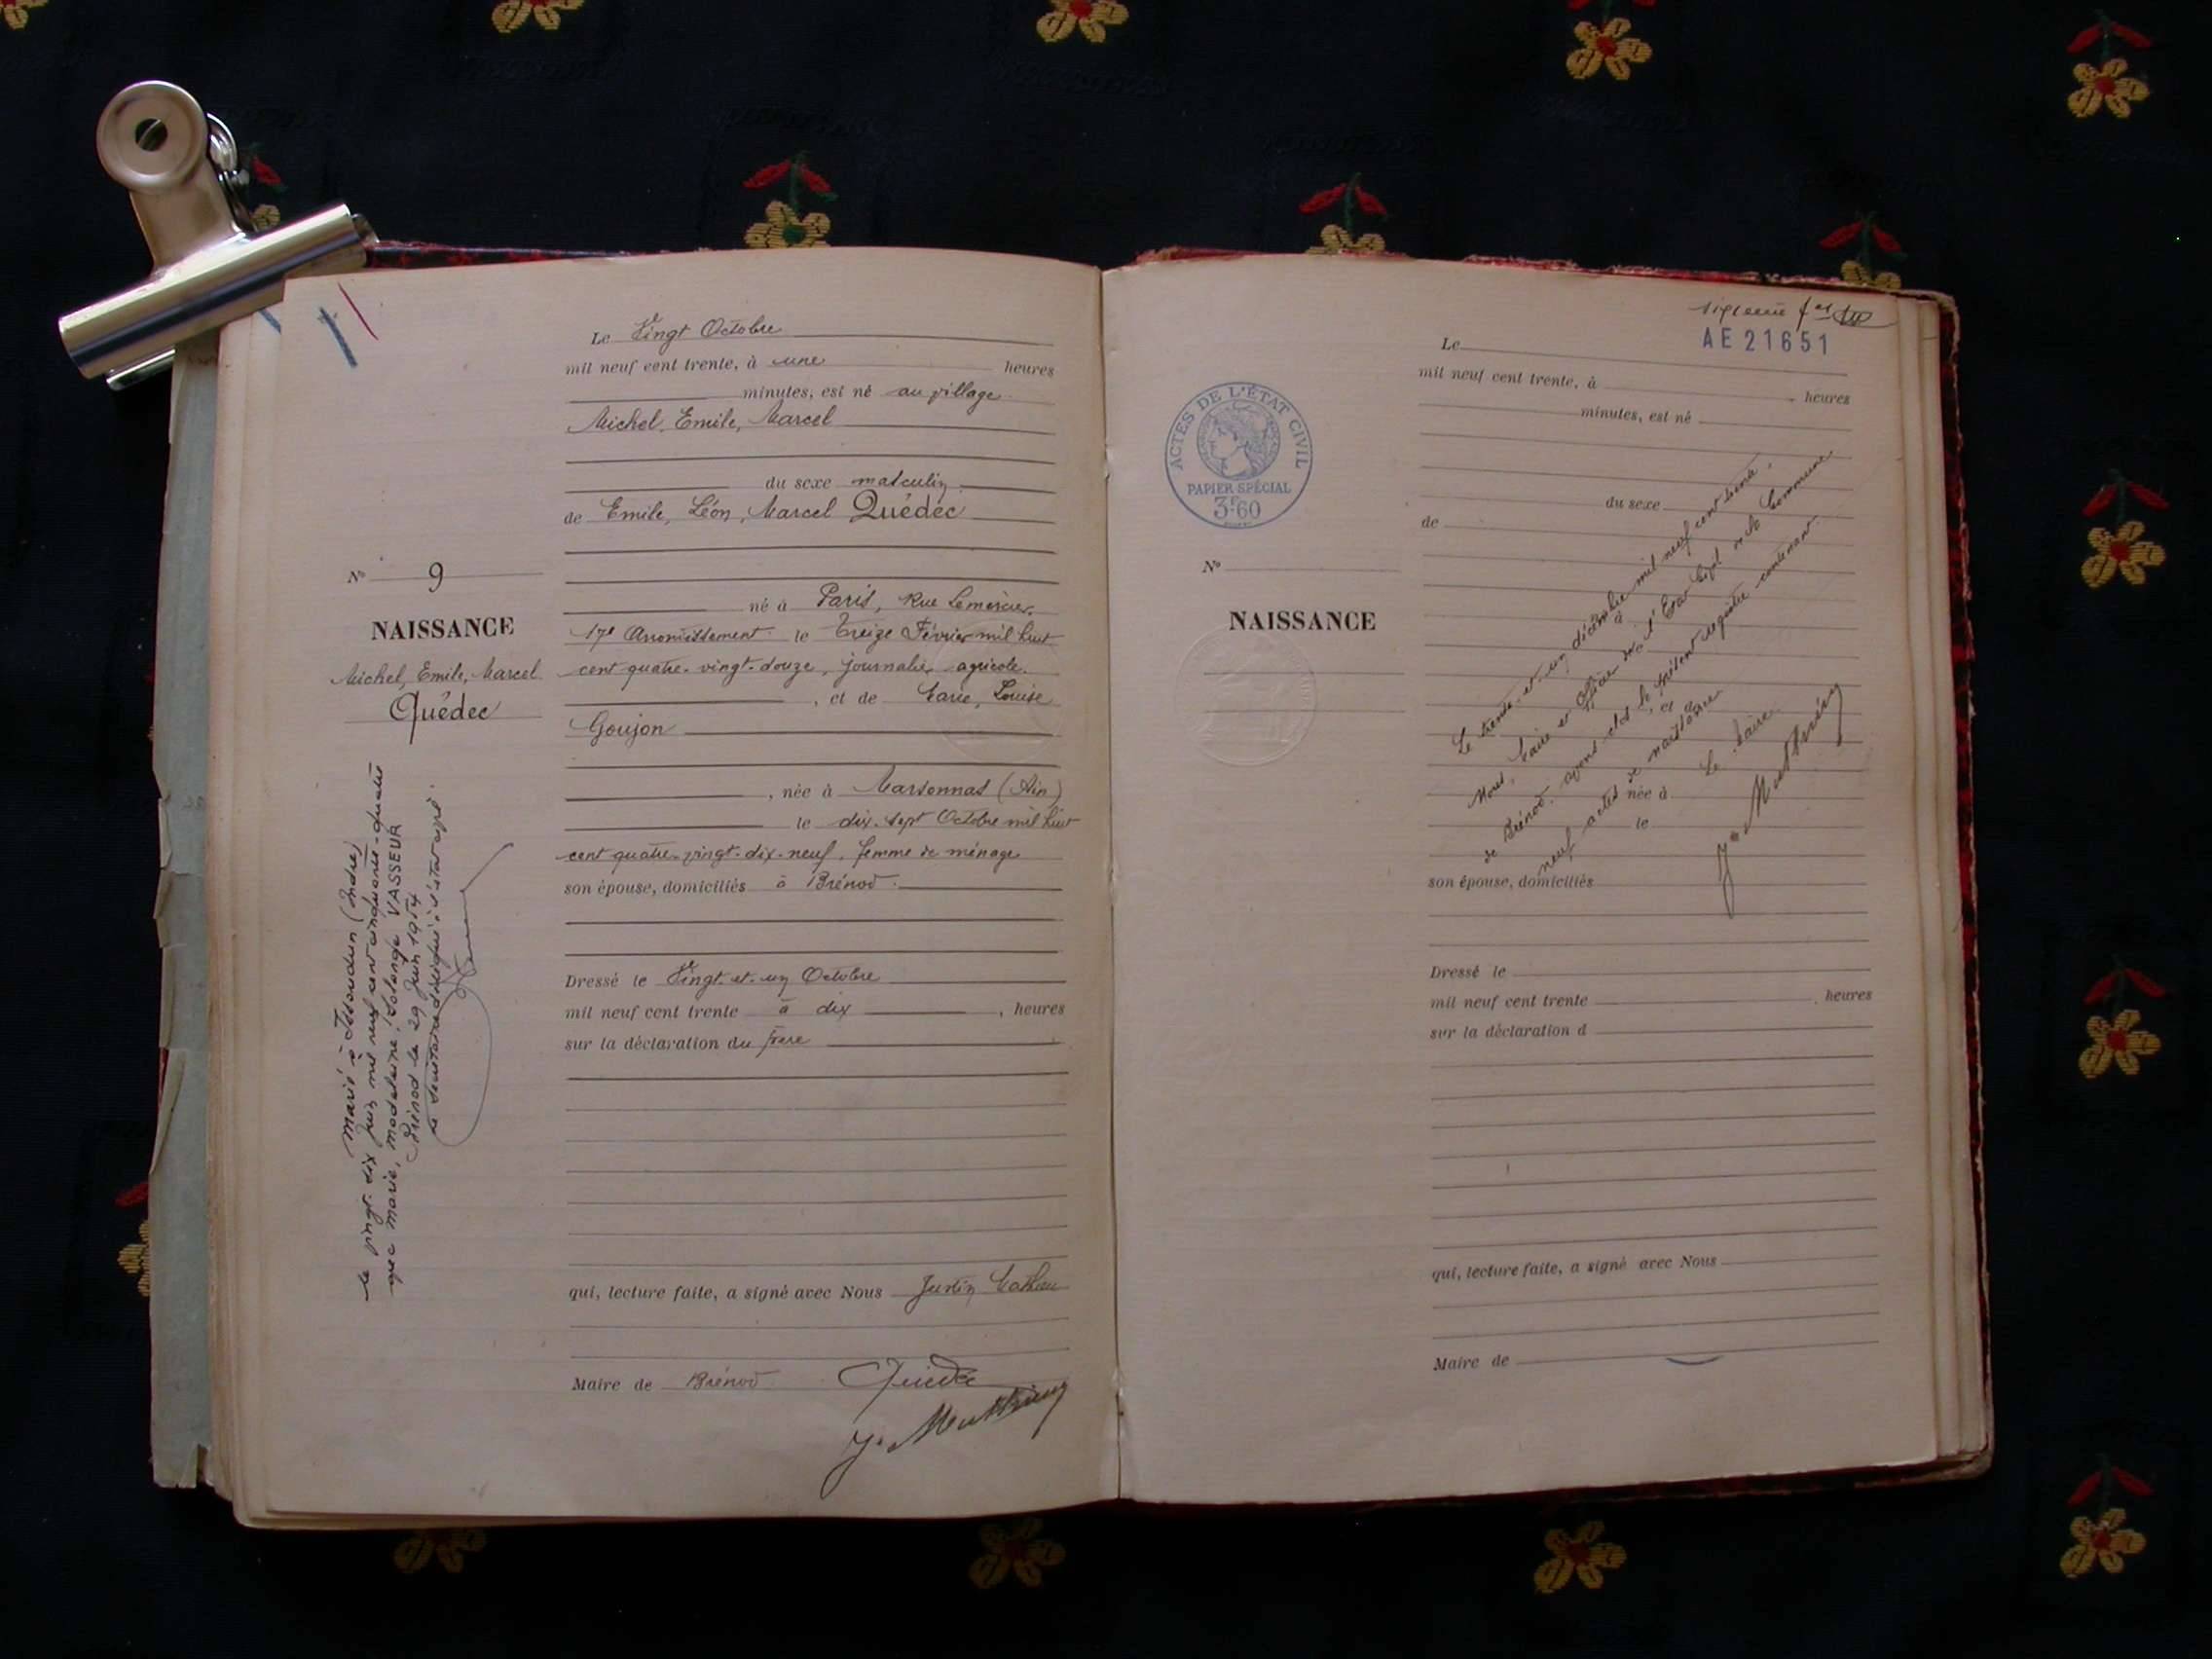 Le Vingt Octobre
mil neuf cent trente, à une heures
minutes, est né au village
Michel, Emile, Marcel
du sexe masculin
de Emile, Léon, Marcel Quédec
né à Paris, Rue Lemercier,
17e Arrondissement le Treize Février mil huit
cent quatre-vingt-douze, journalier agricole
, et de Marie, Louise
Goujon
, née à Marsonnas (Ain)
le dix-sept Octobre mil huit
cent quatre-vingt-dix-neuf, femme de ménage
son épouse, domiciliés à Brénod
Dressé le Vingt-et-un Octobre
mil neuf cent trente à dix , heures
sur la déclaration du père
qui, lecture faite, a signé avec Nous Justin
Maire de Brénod Quédec
No 9
NAISSANCE
Michel, Emile, Marcel
Quédec
Marié à Issoudun (Indre)
le vingt-six juin mil neuf cent cinquante-quatre
avec Marie, Madeleine, Solange VASSEUR
Brénod le 29 Juin 1954
AE 21651
ACTES DE L'ÉTAT CIVIL
PAPIER SPÉCIAL
3F60
No
NAISSANCE
Le
mil neuf cent trente, à heures
minutes, est né
du sexe
de
né à
le
, et de
née à
le
son épouse, domiciliés
Dressé le
mil neuf cent trente , heures
sur la déclaration d
qui, lecture faite, a signé avec Nous
Maire de
Le trente-et-un décembre mil neuf cent trente,
Nous, Maire et Officier de l'Etat Civil de la Commune
de Brénod, avons clos le présent registre contenant
neuf actes de naissance
Le Maire